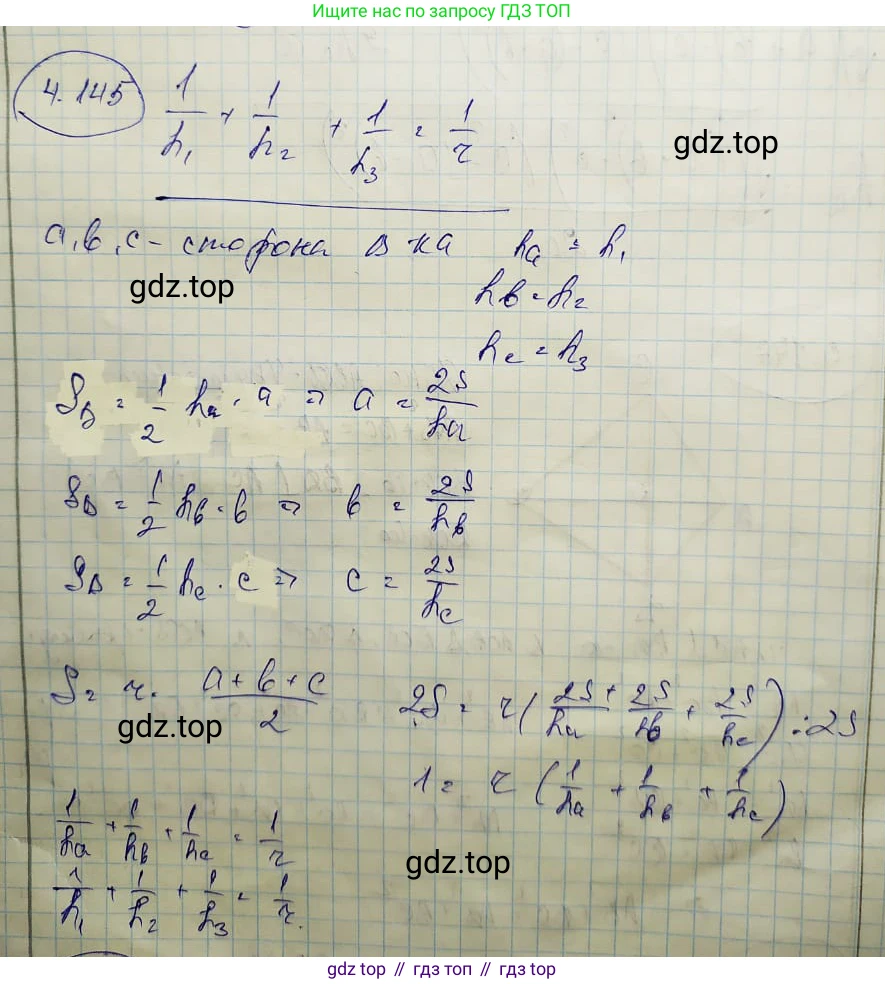 Ищите нас по запросу ГДЗ ТОП
4.145 1/h₁ + 1/h₂ + 1/h₃ = 1/r
gdz.top
a, b, c - сторона Δ ка hₐ = h₁
gdz.top
h_b = h₂
h_c = h₃
S_Δ = 1/2 hₐ · a ⇒ a = 2S/hₐ
S_Δ = 1/2 h_b · b ⇒ b = 2S/h_b
S_Δ = 1/2 h_c · c ⇒ c = 2S/h_c
S = r · (a + b + c)/2 2S = r(2S/hₐ + 2S/h_b + 2S/h_c) : 2S
gdz.top
1 = r (1/hₐ + 1/h_b + 1/h_c)
1/hₐ + 1/h_b + 1/h_c = 1/r
gdz.top
1/h₁ + 1/h₂ + 1/h₃ = 1/r.
gdz top // гдз топ // гдз top